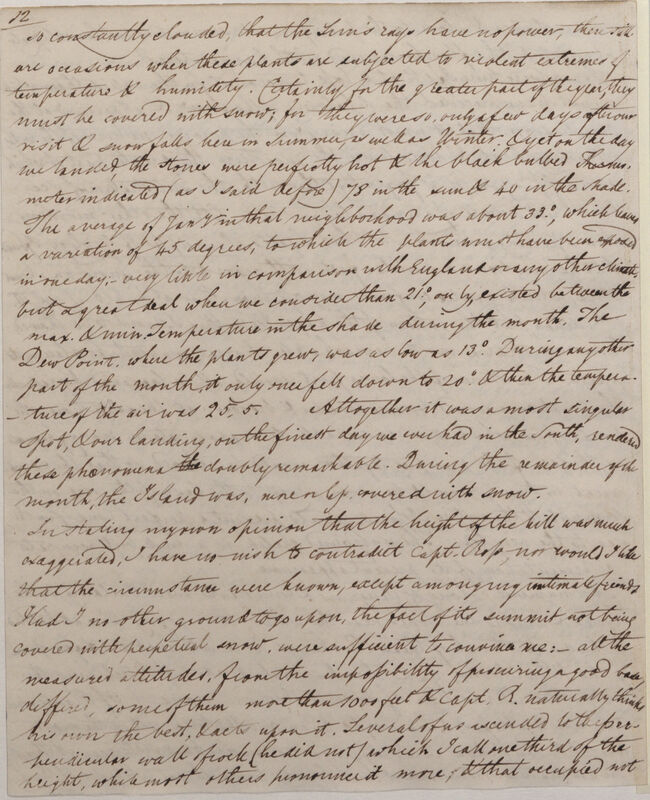 12
so constantly clouded, that the Sun's rays have no power, there still
are occasions when these plants are subjected to violent extremes of
temperature & humidity. Certainly for the greater part of the year, they
must be covered with snow; for they were so, only a few days after our
visit & snow falls here in Summer, as well as Winter. & yet on the day
we landed, the stones were perfectly hot & the black bulbed Thermo-
meter indicated (as I said before) 78 in the sun & 40 in the shade.
The average of Jany in that neighborhood was about 33.°, which leaves
a variation of 45 degrees, to which the plants must have been exposed
in one day;- very little in comparison with England or any other climate,
but a great deal when we consider than 21.°, only existed between the
max. & min. Temperature in the shade during the month. The
Dew Point, where the plants grew, was as low as 13.° During any other
part of the month, it only once fell down to 20.° & then the tempera-
-ture of the air was 25.5. Altogether it was a most singular
spot, & our landing, on the finest day we ever had in the South, rendered
these phœnomena doubly remarkable. During the remainder of the
month, the Island was, more or less, covered with snow.
In stating my own opinion that the height of the hill was much
exaggerated, I have no wish to contradict Capt. Ross, nor would I like
that the circumstance were known, except among my intimate friends
Had I no other ground to go upon, the fact of its summit not being
covered with perpetual snow, were sufficient to convince me:- all the
measured altitudes, from the impossibility of procuring a good base,
differed, some of them more than 1000 feet & Capt. R. naturally thinks
his own the best, & acts upon it. Several of us ascended to the per-
pendicular wall of rock (he did not) which I call one third of the
height, while most others pronounce it more; & that occupied not